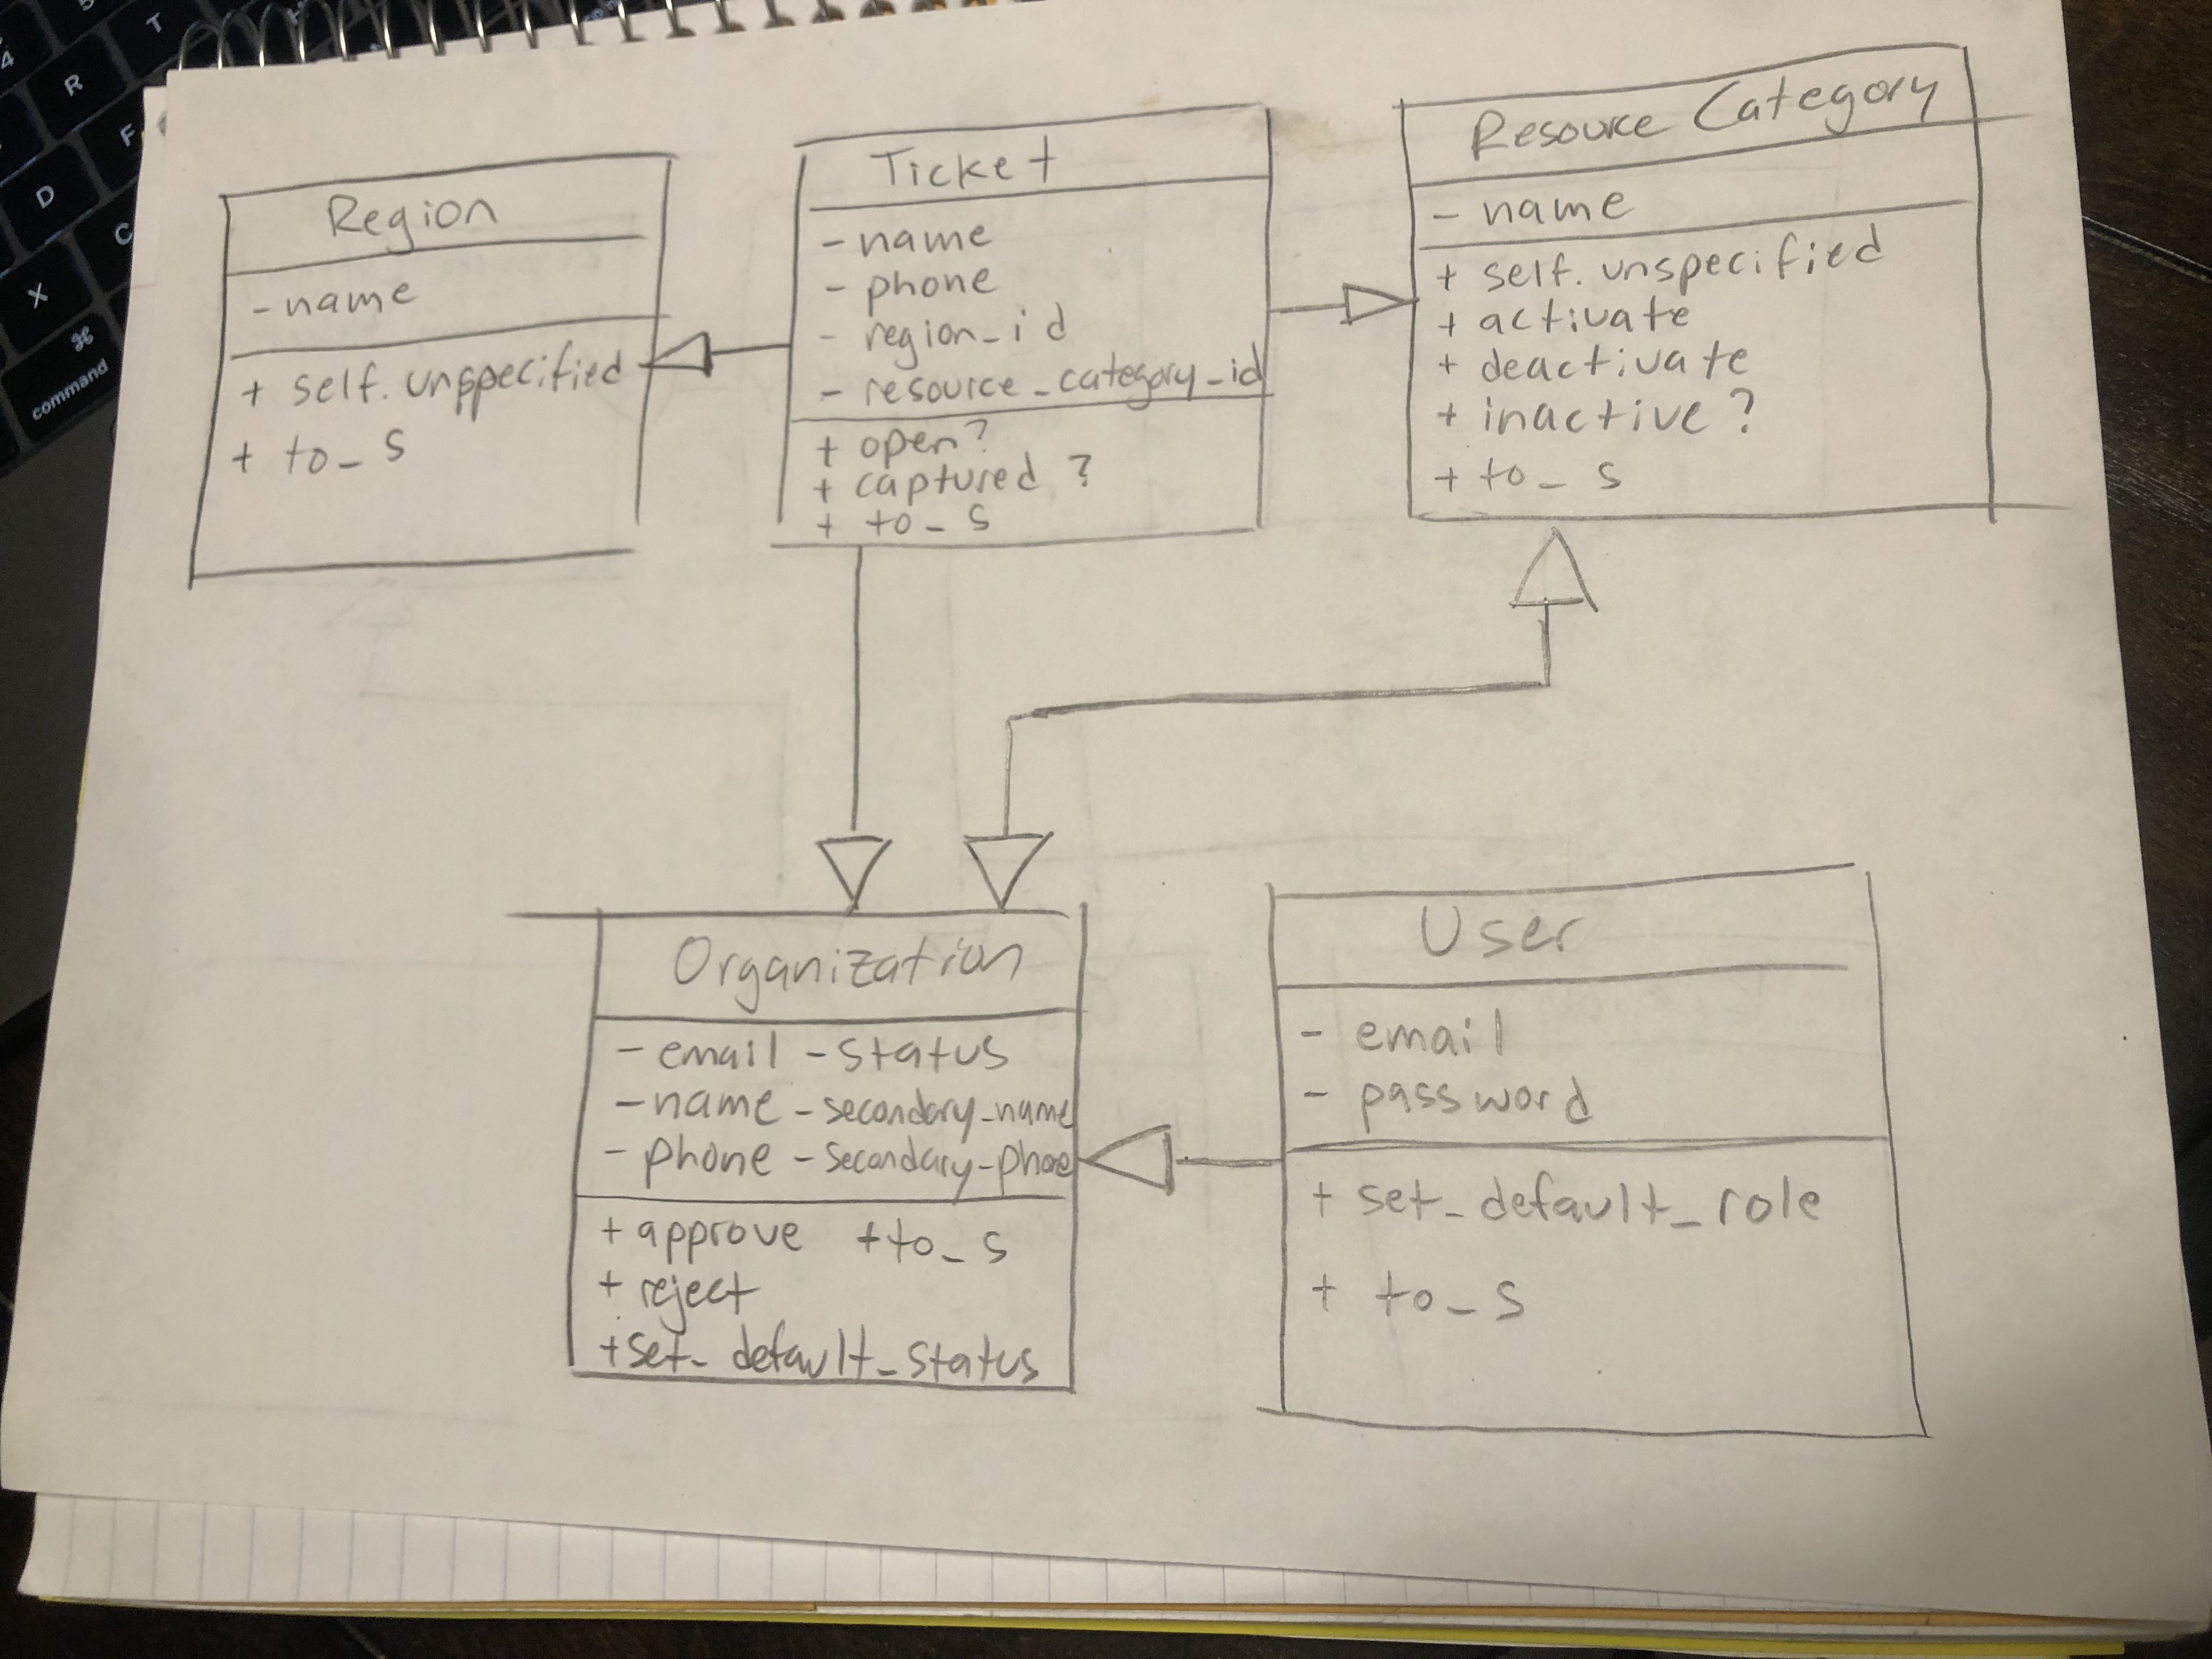 Region
- name
+ self.unspecified
+ to_s
Ticket
- name
- phone
- region_id
- resource_category_id
+ open?
+ captured?
+ to_s
Resource Category
- name
+ self.unspecified
+ activate
+ deactivate
+ inactive?
+ to_s
Organization
- email - status
- name - secondary-name
- phone - secondary-phone
+ approve + to_s
+ reject
+ set_default_status
User
- email
- password
+ set_default_role
+ to_s
command
⌘
X
C
D
F
R
T
4
5